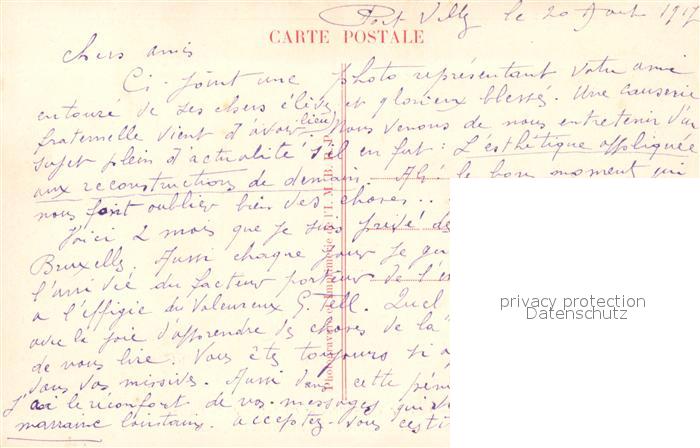 Port Villez le 20 Aout 1917
CARTE POSTALE
chers amis
Ci-joint une photo représentant votre ami
entouré de ses chers élèves et glorieux blessés. Une causerie
fraternelle vient d'avoir lieu. Nous venons de nous entretenir d'un
sujet plein d'actualité s'il en fut: L'esthétique appliquée
aux reconstructions de demain. Ah! le bon moment qui
nous font oublier bien des choses..
Voici 2 mois que je suis privé de
Bruxelles. Aussi chaque jour je
l'arrivée du facteur porteur de
a l'effigie du Valeureux G. Tell. Quel
avec la joie d'apprendre des choses de la
de vous lire. Vous êtes toujours si
dans vos missives. Aussi dans cette
J'ai le réconfort de vos messages qui
marraine lointains. acceptez-vous
Photogravure et Imprimerie de l'I. M. I. B.
privacy protection
Datenschutz